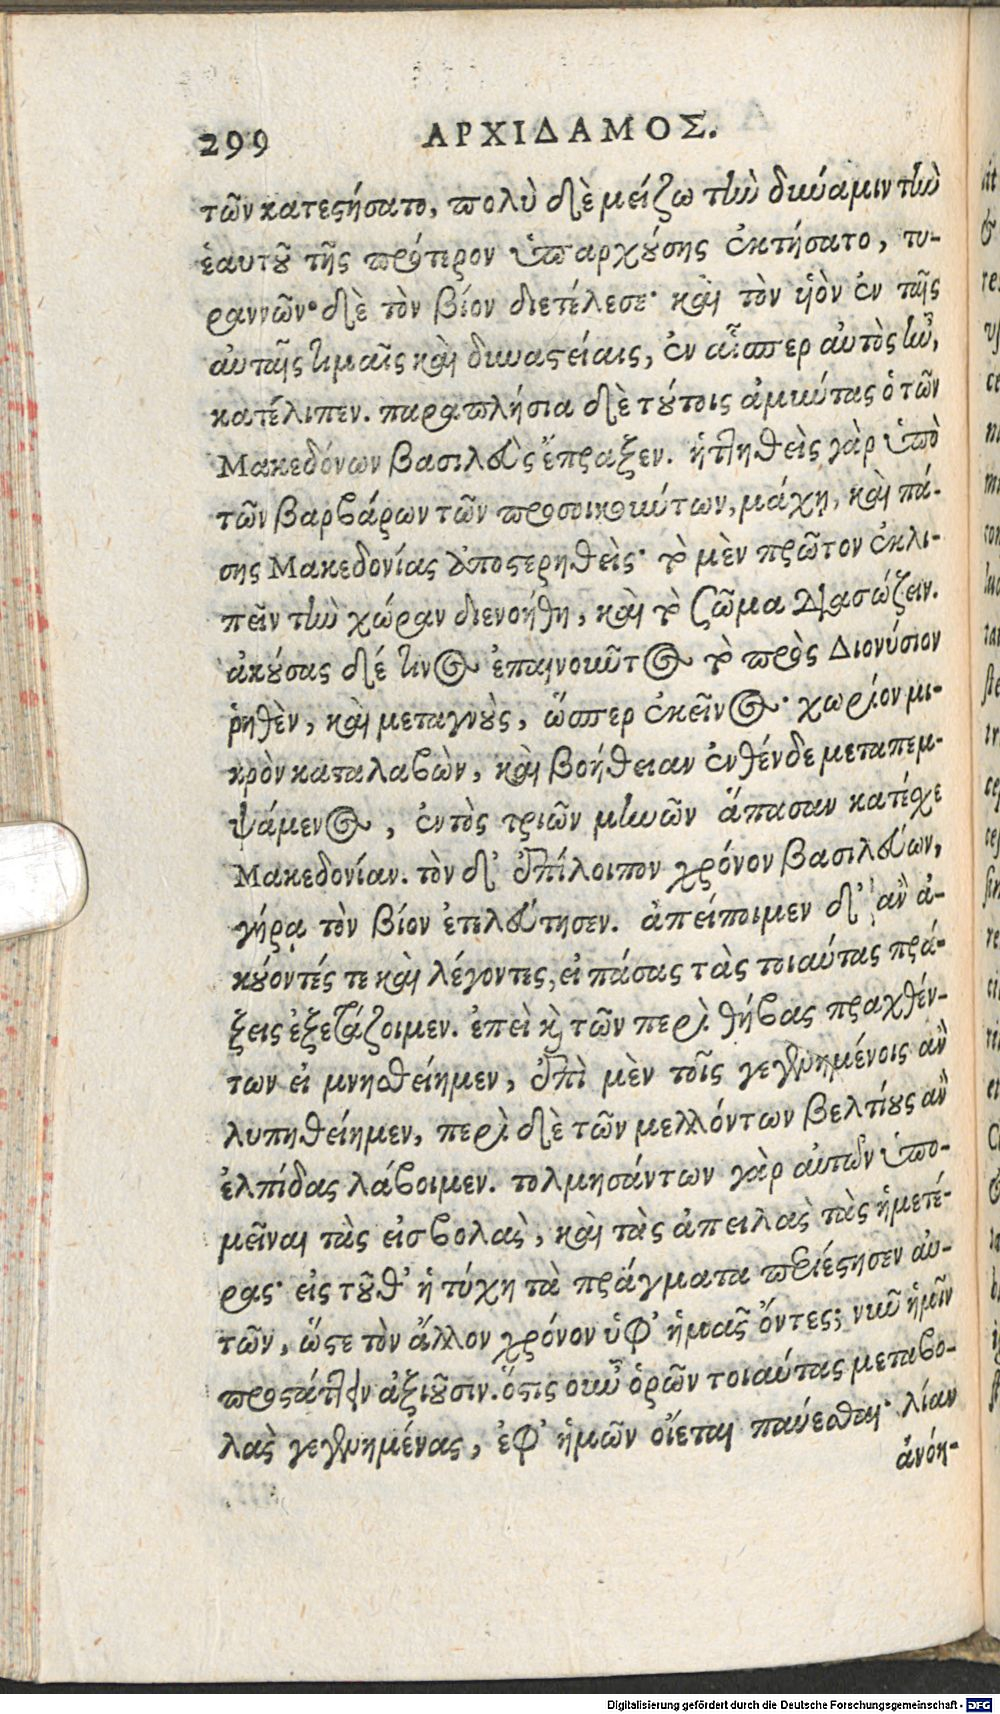 299 ΑΡΧΙΔΑΜΟΣ.
τῶν κατεστήσατο, πολὺ δὲ μείζω τὴν δύναμιν τὴν
ἑαυτοῦ τῆς πρότερον ὑπαρχούσης ἐκτήσατο, τυ-
ραννῶν· δὲ τὸν βίον διετέλεσε· καὶ τὸν ὑὸν ἐν ταῖς
αὐταῖς τιμαῖς καὶ δυναστείαις, ἐν αἷσπερ αὐτὸς ἦν,
κατέλιπεν. παραπλήσια δὲ τούτοις ἀμύντας ὁ τῶν
Μακεδόνων βασιλεὺς ἔπραξεν. ἡττηθεὶς γὰρ ὑπὸ
τῶν βαρβάρων τῶν προσοικούντων, μάχῃ, καὶ πά-
σης Μακεδονίας ἀποστερηθεὶς· τὸ μὲν πρῶτον ἐκλι-
πεῖν τὴν χώραν διενοήθη, καὶ τὸ σῶμα διασώζειν.
ἀκούσας δέ τινος ἐπαινοῦντος τὸ πρὸς Διονύσιον
ῥηθὲν, καὶ μεταγνοὺς, ὥσπερ ἐκεῖνος· χωρίον μι-
κρὸν καταλαβὼν, καὶ βοήθειαν ἐνθένδε μεταπεμ-
ψάμενος, ἐντὸς τριῶν μηνῶν ἅπασαν κατέσχε
Μακεδονίαν. τὸν δ’ ἐπίλοιπον χρόνον βασιλεύων,
γήρᾳ τὸν βίον ἐτελεύτησεν. ἀπείποιμεν δ’ ἂν ἀ-
κούοντές τε καὶ λέγοντες, εἰ πάσας τὰς τοιαύτας πρά-
ξεις ἐξετάζοιμεν. ἐπεὶ καὶ τῶν περὶ θήβας πραχθέν-
των εἰ μνησθείημεν, ἐπὶ μὲν τοῖς γεγενημένοις ἂν
λυπηθείημεν, περὶ δὲ τῶν μελλόντων βελτίους ἂν
ἐλπίδας λάβοιμεν. τολμησάντων γὰρ αὐτῶν ὑπο-
μεῖναι τὰς εἰσβολὰς, καὶ τὰς ἀπειλὰς τὰς ἡμετέ-
ρας· εἰς τοῦθ’ ἡ τύχη τὰ πράγματα περιέστησεν αὐ-
τῶν, ὥστε τὸν ἄλλον χρόνον ὑφ’ ἡμᾶς ὄντες; νῦν ἡμῖν
προστάττειν ἀξιοῦσιν. ὅστις οὖν ὁρῶν τοιαύτας μεταβο-
λὰς γεγενημένας, ἐφ’ ἡμῶν οἴεται παύεσθαι· λίαν
ἀνόη-
Digitalisierung gefördert durch die Deutsche Forschungsgemeinschaft - DFG